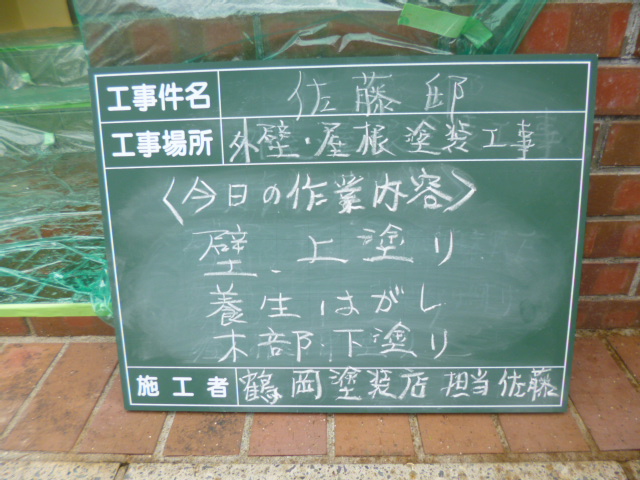 工事件名 佐藤邸
工事場所 外壁・屋根塗装工事
〈今日の作業内容〉
壁、上塗り
養生はがし
木部下塗り
施工者 鶴岡塗装店 担当佐藤